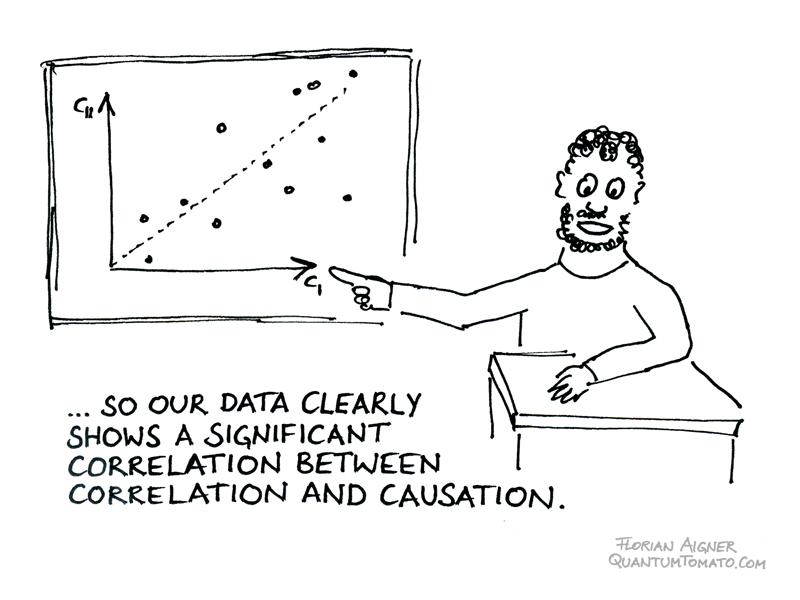 C_II
C_I
... SO OUR DATA CLEARLY
SHOWS A SIGNIFICANT
CORRELATION BETWEEN
CORRELATION AND CAUSATION.
FLORIAN AIGNER
QUANTUMTOMATO.COM